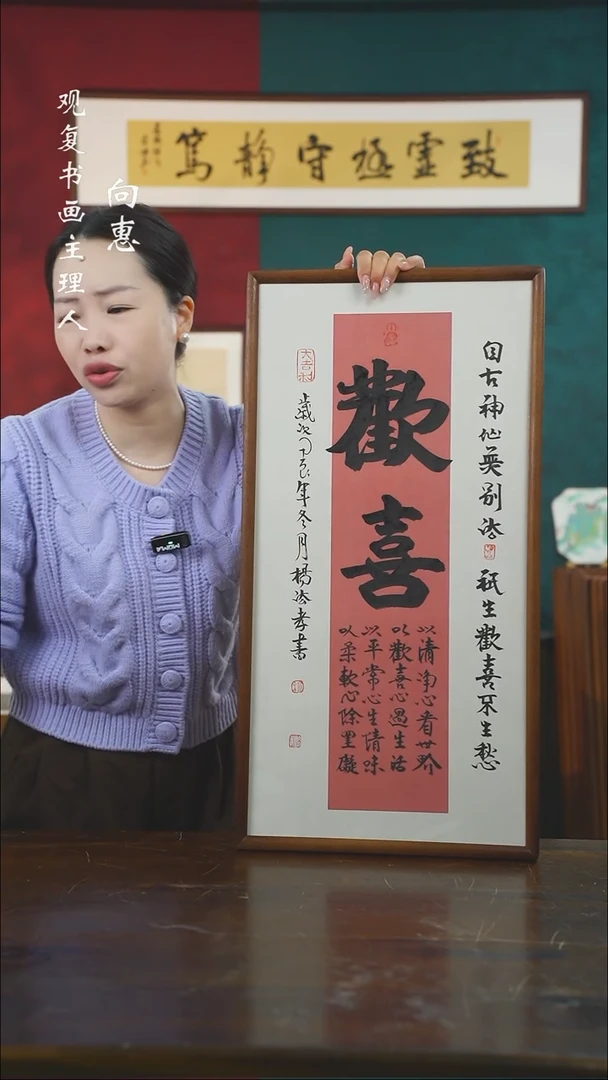 观复书画主理人
向惠
致虚極守静篤
自古神仙無别法 祇生歡喜不生愁
歡喜
以清净心看世界
以歡喜心過生活
以平常心生情味
以柔軟心除罣礙
大吉祥
歲次年冬月楊法孝書